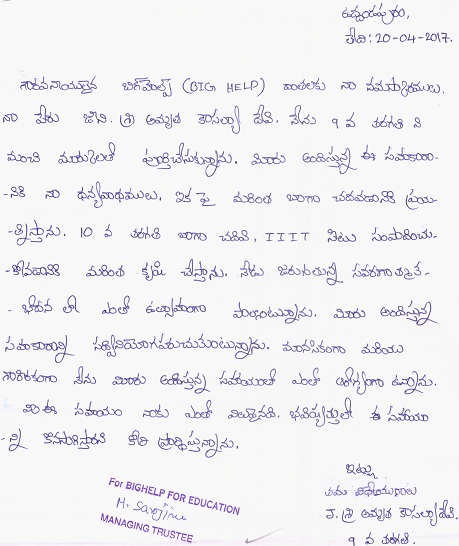 ఉద్ధయపురం,
తేది: 20-04-2017.
గౌరవనీయులైన బిగ్‌హెల్ప్ (BIG HELP) దాతలకు నా నమస్కారములు.
నా పేరు జె.శ్రీ అమృత కౌసల్యా దేవి. నేను 9 వ తరగతి ని
మంచి మార్కులతో పూర్తిచేసుకున్నాను. మీరు అందిస్తున్న ఈ సహకారా-
-నికి నా ధన్యవాధములు. ఇక పై మరింత బాగా చదవడానికి ప్రయ-
-త్నిస్తాను. 10 వ తరగతి బాగా చదివి, IIIT సీటు సంపాదించు-
-కోవడానికి మరింత కృషి చేస్తాను. నేడు జరుగుతున్న
-బోధన లో ఎంతో ఉత్సాహంగా పాల్గొంటున్నాను. మీరు అందిస్తున్న
సహకారాన్ని సద్వినియోగపరుచుకుంటున్నాను. మానసికంగా మరియు
శారీరకంగా నేను మీరు అందిస్తున్న సహాయంతో ఎంతో ఆరోగ్యంగా ఉన్నాను.
మీ ఈ సహాయం నాకు ఎంతో విలువైనది. భవిష్యత్తులో ఈ సహాయా-
-న్ని కొనసాగిస్తారని కోరి ప్రార్థిస్తున్నాను.
ఇట్లు
తమ విధేయురాలు
J. శ్రీ అమృత కౌసల్యాదేవి.
9 వ తరగతి.
For BIGHELP FOR EDUCATION
M. Sarojini
MANAGING TRUSTEE